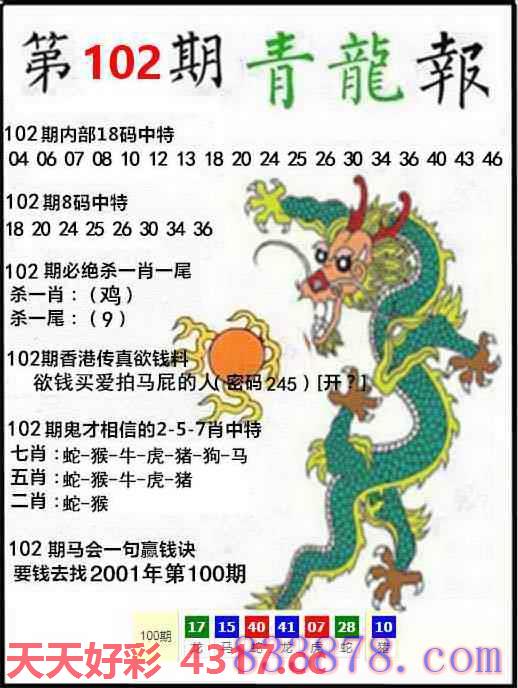 第102期 青龍報
102期内部18码中特
04 06 07 08 10 12 13 18 20 24 25 26 30 34 36 40 43 46
102期8码中特
18 20 24 25 26 30 34 36
102期必绝杀一肖一尾
杀一肖：（鸡）
杀一尾：（9）
102期香港传真欲钱料
欲钱买爱拍马屁的人(密码245)[开?]
102期鬼才相信的2-5-7肖中特
七肖：蛇-猴-牛-虎-猪-狗-马
五肖：蛇-猴-牛-虎-猪
二肖：蛇-猴
102期马会一句赢钱诀
要钱去找2001年第100期
100期 17 15 40 41 07 28 10
龙 马 蛇 龙 虎 蛇 猪
天天好彩 4317.cc
838878.com